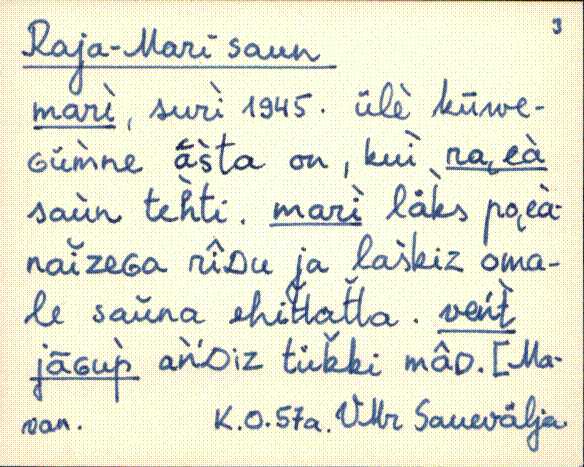 3
Raja-Mari saun
marì, surì 1945. ülè kūwe-
Gǜmne ās̀ta on, kuì raᶒeà
saùn teh̀ti. marì låk̀s poᶒeà-
naǐzeGa rîDu ja las̀kiz oma-
le saǔna ehitlatla. veńt̀
jāGup̀ ań̀Diz tük̆ki mâD. [Ma-
van. K.O. 57a. VMr Sauevälja